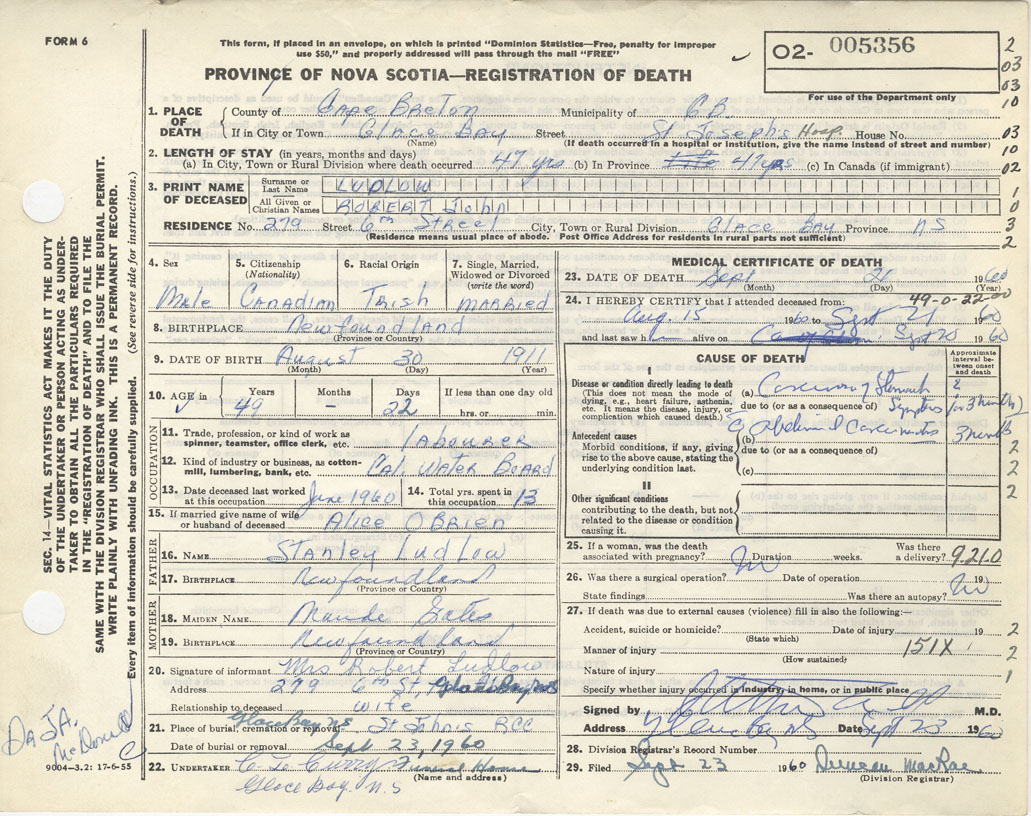 FORM 6
This form, if placed in an envelope, on which is printed "Dominion Statistics—Free, penalty for improper
use $50," and properly addressed will pass through the mail "FREE"
PROVINCE OF NOVA SCOTIA—REGISTRATION OF DEATH
02- 005356
For use of the Department only
2
03
03
10
03
10
02
1
0
3
2
1. PLACE OF DEATH
County of Cape Breton Municipality of C.B.
If in City or Town Glace Bay Street St Joseph's Hosp. House No.
(Name) (If death occurred in a hospital or institution, give the name instead of street and number)
2. LENGTH OF STAY (in years, months and days)
(a) In City, Town or Rural Division where death occurred 47 yrs (b) In Province 47 yrs (c) In Canada (if immigrant)
3. PRINT NAME OF DECEASED
Surname or Last Name LUDLOW
All Given or Christian Names ROBERT John
RESIDENCE No. 279 Street 6th Street City, Town or Rural Division Glace Bay Province NS
(Residence means usual place of abode. Post Office Address for residents in rural parts not sufficient)
4. Sex
Male
5. Citizenship
(Nationality)
Canadian
6. Racial Origin
Irish
7. Single, Married,
Widowed or Divorced
(write the word)
MARRIED
8. BIRTHPLACE Newfoundland
(Province or Country)
9. DATE OF BIRTH August 30 1911
(Month) (Day) (Year)
10. AGE Years Months Days If less than one day old
49 - 22 hrs. or min.
OCCUPATION
11. Trade, profession, or kind of work as
spinner, teamster, office clerk, etc. labourer
12. Kind of industry or business, as cotton-
mill, lumbering, bank, etc. Water Board
13. Date deceased last worked
at this occupation June 1960
14. Total yrs. spent in
this occupation 13
15. If married give name of wife
or husband of deceased Alice O'Brien
FATHER
16. NAME Stanley Ludlow
17. BIRTHPLACE Newfoundland
MOTHER
18. MAIDEN NAME Maude Gates
19. BIRTHPLACE Newfoundland
(Province or Country)
20. Signature of informant Mrs Robert Ludlow
Address 279 6th St, Glace Bay NS
Relationship to deceased wife
21. Place of burial, cremation or removal Glace Bay NS St John's RCC
Date of burial or removal Sept 23, 1960
22. UNDERTAKER Curry Funeral Home
(Name and address)
Glace Bay. N.S
MEDICAL CERTIFICATE OF DEATH
23. DATE OF DEATH Sept 21 1960
(Month) (Day) (Year)
24. I HEREBY CERTIFY that I attended deceased from: 49-0-22-00
Aug. 15 1960 to Sept 21 1960
and last saw h alive on Sept 20 1960
CAUSE OF DEATH
Approximate
interval be-
tween onset
and death
I
Disease or condition directly leading to death
(This does not mean the mode of
dying, e.g., heart failure, asthenia,
etc. It means the disease, injury, or
complication which caused death.)
(a) Carcinoma of Stomach
due to (or as a consequence of) Symptoms for 3 months)
Antecedent causes
Morbid conditions, if any, giving
rise to the above cause, stating the
underlying condition last.
c̄ Abdominal Carcinomatosis 3 months
(b)
due to (or as a consequence of)
(c)
II
Other significant conditions
contributing to the death, but not
related to the disease or condition
causing it.
2
2
2
25. If a woman, was the death
associated with pregnancy? Duration weeks. Was there
a delivery? 9.21.0
26. Was there a surgical operation? Date of operation 19
State findings Was there an autopsy? No
27. If death was due to external causes (violence) fill in also the following:—
Accident, suicide or homicide? Date of injury 19
(State which)
Manner of injury 151X
(How sustained)
Nature of injury
2
2
1
Specify whether injury occurred in industry, in home, or in public place
Signed by M.D.
Address Glace Bay NS Date Sept 23 1960
28. Division Registrar's Record Number
29. Filed Sept 23 1960 Duncan MacRae
(Division Registrar)
SEC. 14—VITAL STATISTICS ACT MAKES IT THE DUTY
OF THE UNDERTAKER OR PERSON ACTING AS UNDER-
TAKER TO OBTAIN ALL THE PARTICULARS REQUIRED
IN THE "REGISTRATION OF DEATH" AND TO FILE THE
SAME WITH THE DIVISION REGISTRAR WHO SHALL ISSUE THE BURIAL PERMIT.
WRITE PLAINLY WITH UNFADING INK. THIS IS A PERMANENT RECORD.
Every item of information should be carefully supplied. (See reverse side for instructions.)
Dr JA.
McDonald
9004-3.2: 17-6-55